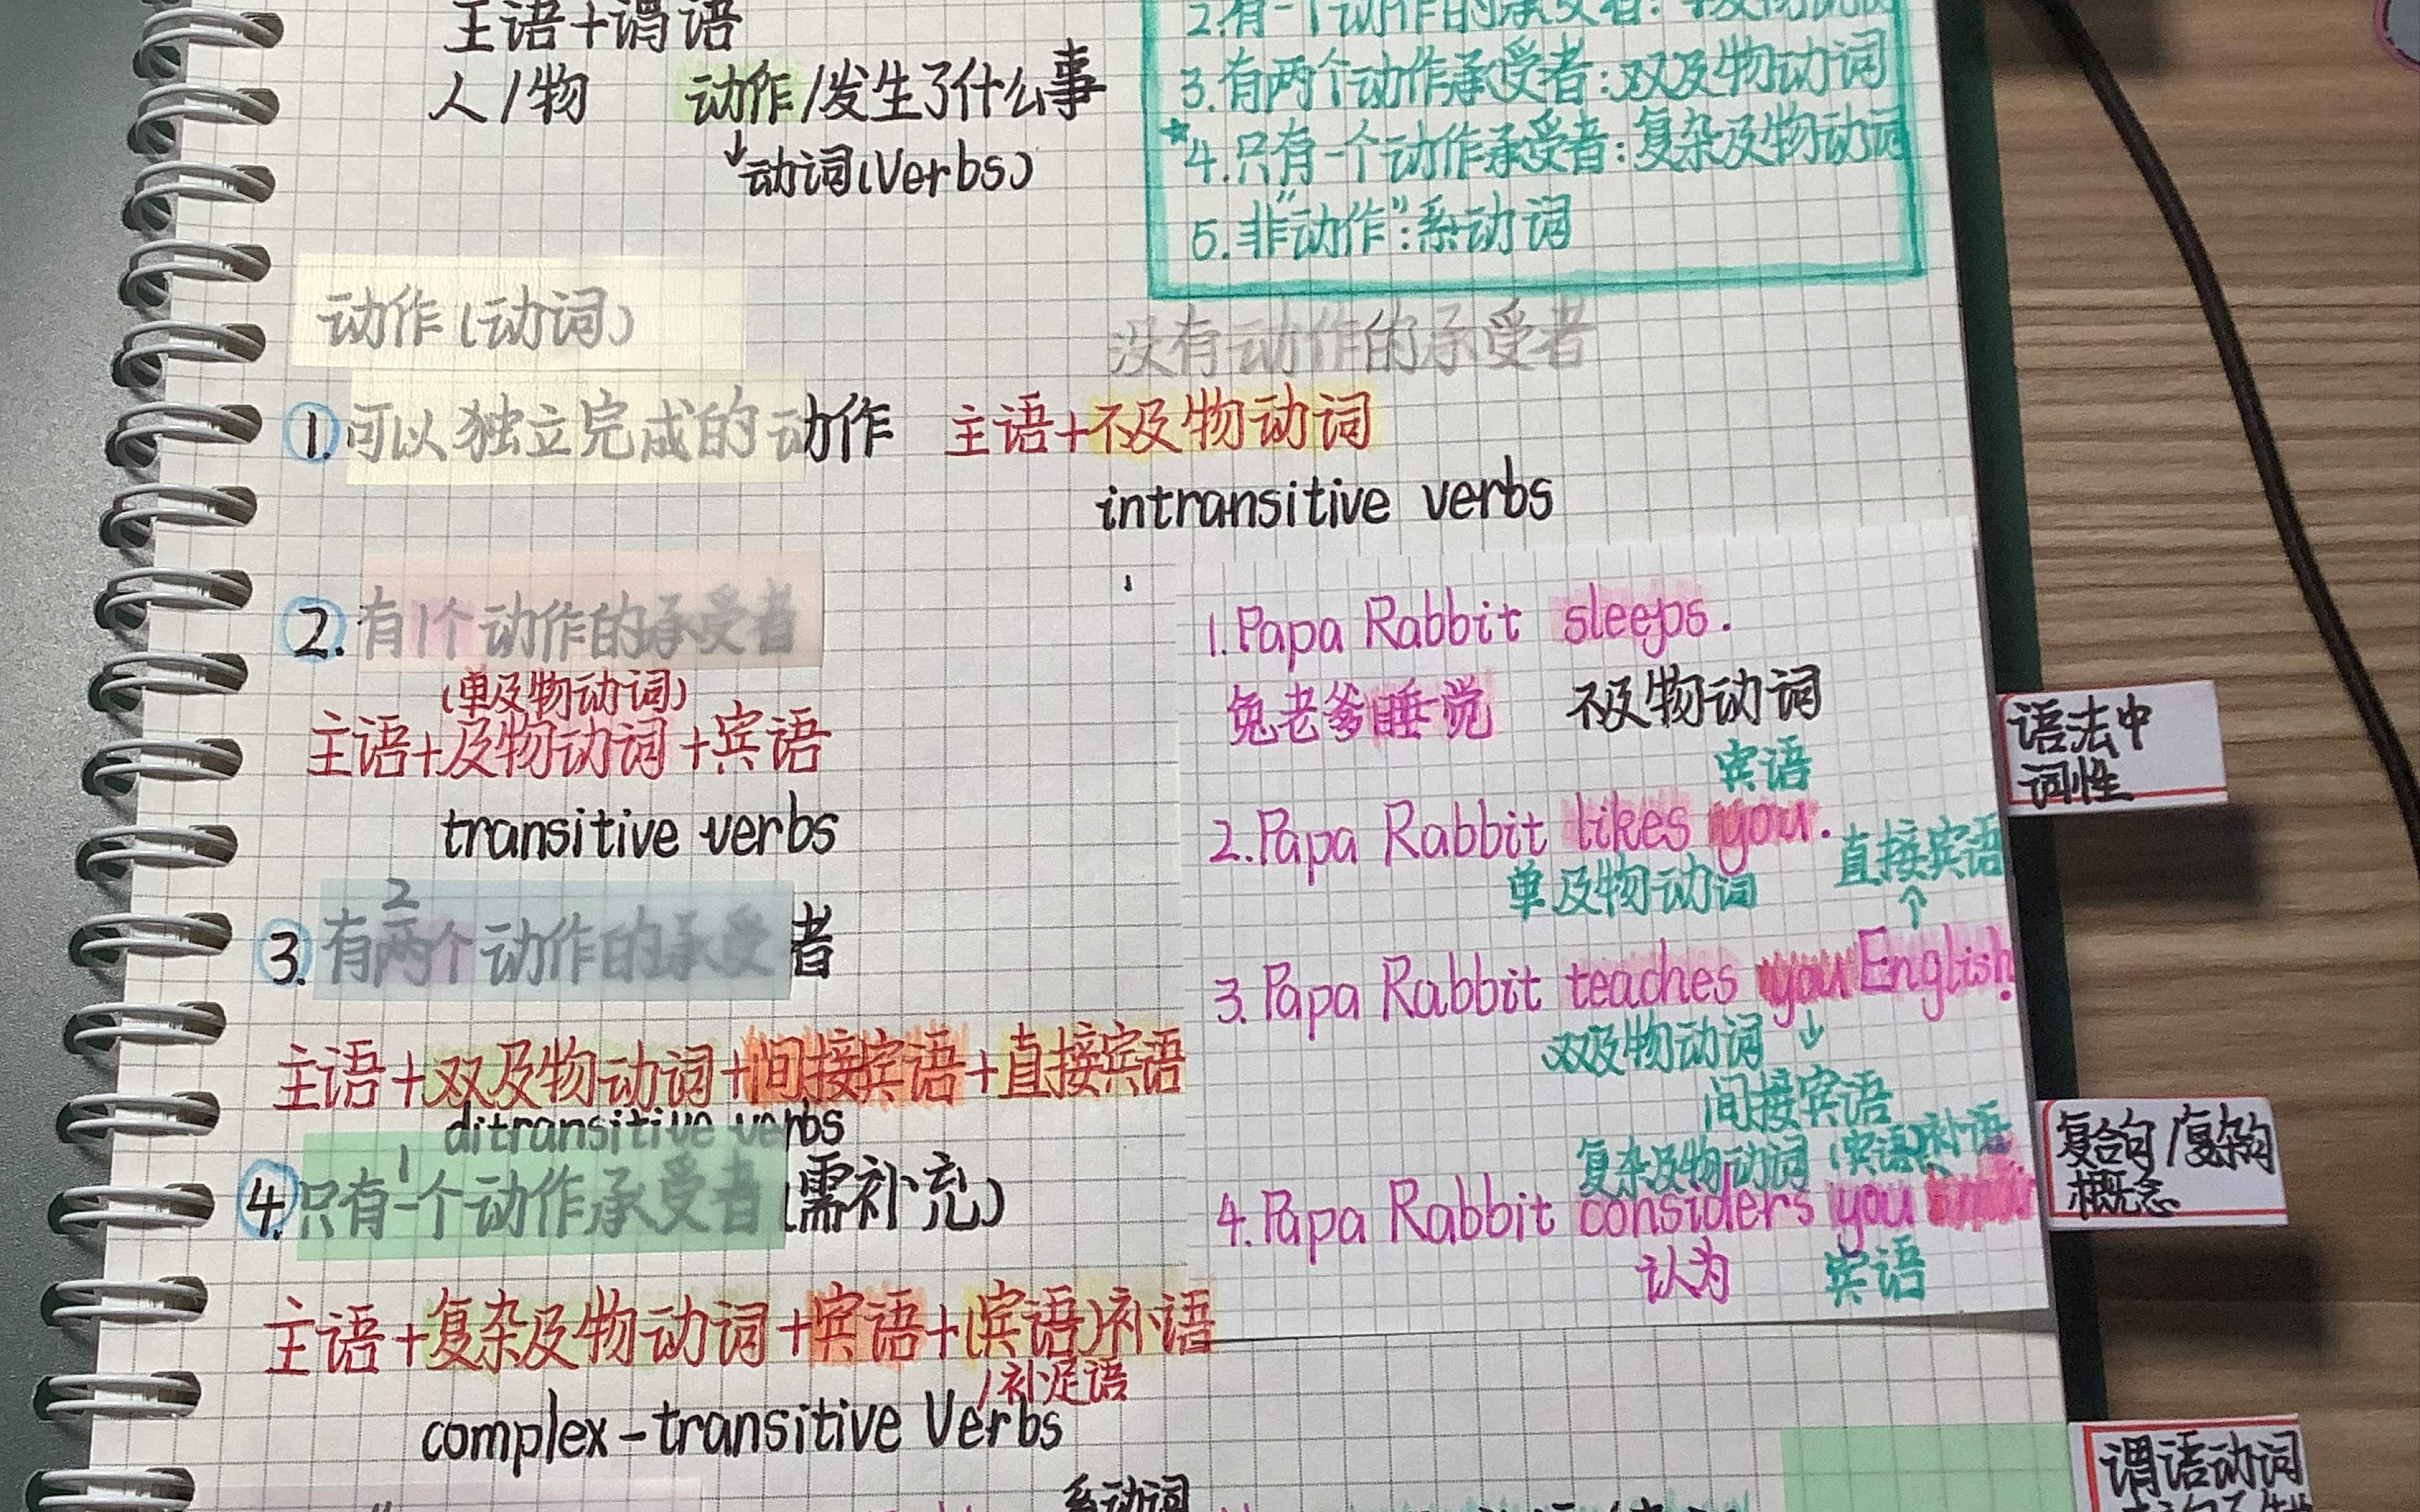 主语+谓语
人/物 动作/发生了什么事
↓动词(Verbs)
2.有一个动作的承受者:单及物动词
3.有两个动作承受者:双及物动词
★4.只有一个动作承受者:复杂及物动词
5.非“动作”:系动词
动作(动词)
没有动作的承受者
1.可以独立完成的动作 主语+不及物动词
intransitive verbs
2.有1个动作的承受者
(单及物动词)
主语+及物动词+宾语
transitive verbs
2
3.有两个动作的承受者
主语+双及物动词+间接宾语+直接宾语
ditransitive verbs
1
4.只有一个动作承受者(需补充)
主语+复杂及物动词+宾语+(宾语)补语
/补足语
complex-transitive Verbs
系动词
1.Papa Rabbit sleeps.
兔老爹睡觉 不及物动词
宾语
2.Papa Rabbit likes you.
单及物动词
直接宾语
↑
3.Papa Rabbit teaches you English.
双及物动词 ↓
间接宾语
复杂及物动词 (宾语)补语
4.Papa Rabbit considers you
认为 宾语
语法中
词性
复合句/复杂句
概念
谓语动词